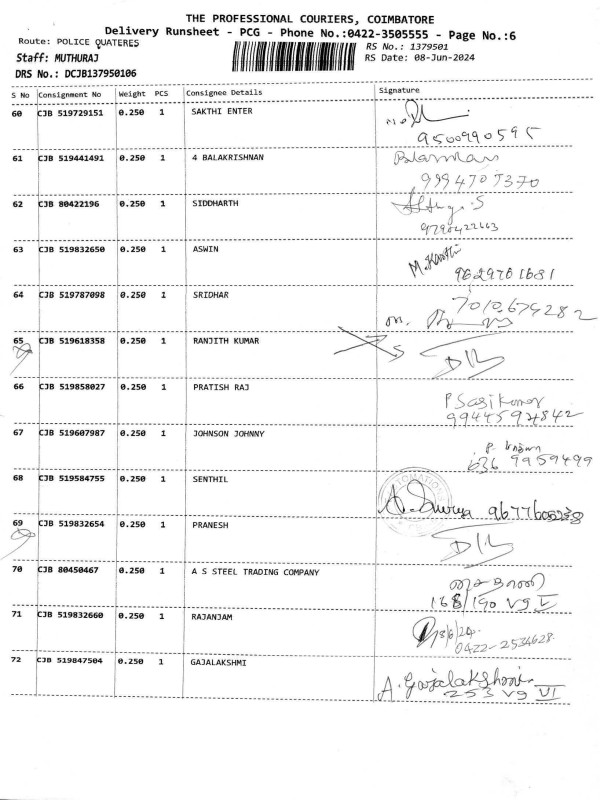 THE PROFESSIONAL COURIERS, COIMBATORE
Delivery Runsheet - PCG - Phone No.:0422-3505555 - Page No.:6
Route: POLICE QUATERES
RS No.: 1379501
Staff: MUTHURAJ
RS Date: 08-Jun-2024
DRS No.: DCJB137950106
S No Consignment No Weight PCS Consignee Details Signature
60 CJB 519729151 0.250 1 SAKTHI ENTER
9500990595
61 CJB 519441491 0.250 1 4 BALAKRISHNAN
62 CJB 80422196 0.250 1 SIDDHARTH
9790422663
63 CJB 519832650 0.250 1 ASWIN
9629761681
64 CJB 519787098 0.250 1 SRIDHAR
7010674282
65 CJB 519618358 0.250 1 RANJITH KUMAR
66 CJB 519858027 0.250 1 PRATISH RAJ
P Sasi Kumar
9944594842
67 CJB 519607987 0.250 1 JOHNSON JOHNNY
636 9959499
68 CJB 519584755 0.250 1 SENTHIL
A. Surya
69 CJB 519832654 0.250 1 PRANESH
70 CJB 80450467 0.250 1 A S STEEL TRADING COMPANY
168/190 V9 V
71 CJB 519832660 0.250 1 RAJANJAM
13/6/24
0422-2534628
72 CJB 519847504 0.250 1 GAJALAKSHMI
A. Gajalakshmi
253 V9 VI